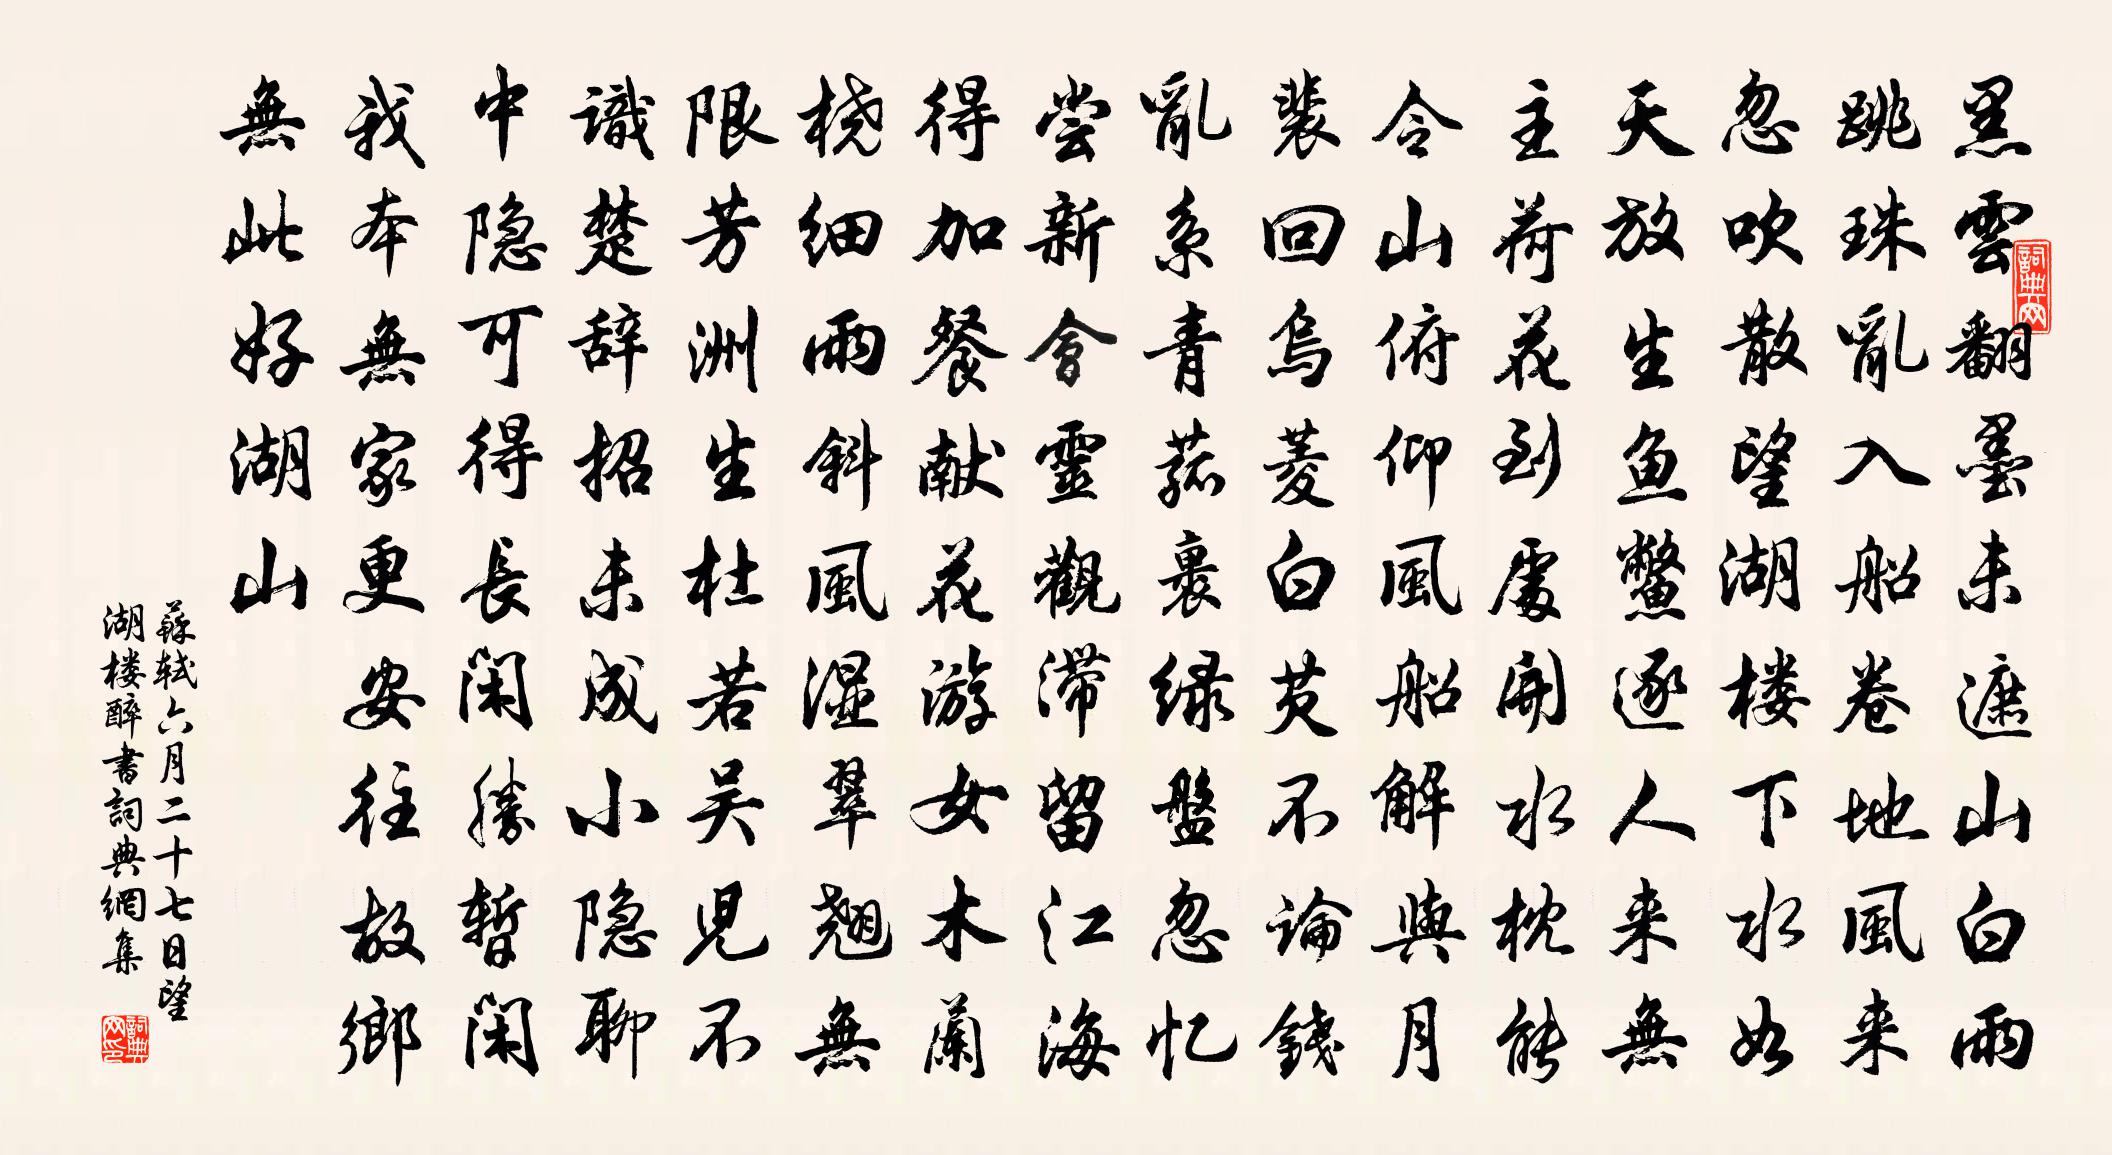 黑雲翻墨未遮山白雨
跳珠亂入船卷地風来
忽吹散望湖楼下水如
天放生鱼鱉逐人来無
主荷花到處開水枕能
令山俯仰風船解與月
裴回烏菱白芡不論錢
亂系青菰裹绿盤忽忆
尝新會靈觀滞留江海
得加餐献花游女木蘭
桡细雨斜風湿翠翘無
限芳洲生杜若吴児不
識楚辞招未成小隐聊
中隐可得長闲勝暫闲
我本無家更安往故鄉
無此好湖山
蘇轼六月二十七日望
湖楼醉書詞典網集
詞典网
詞典网印